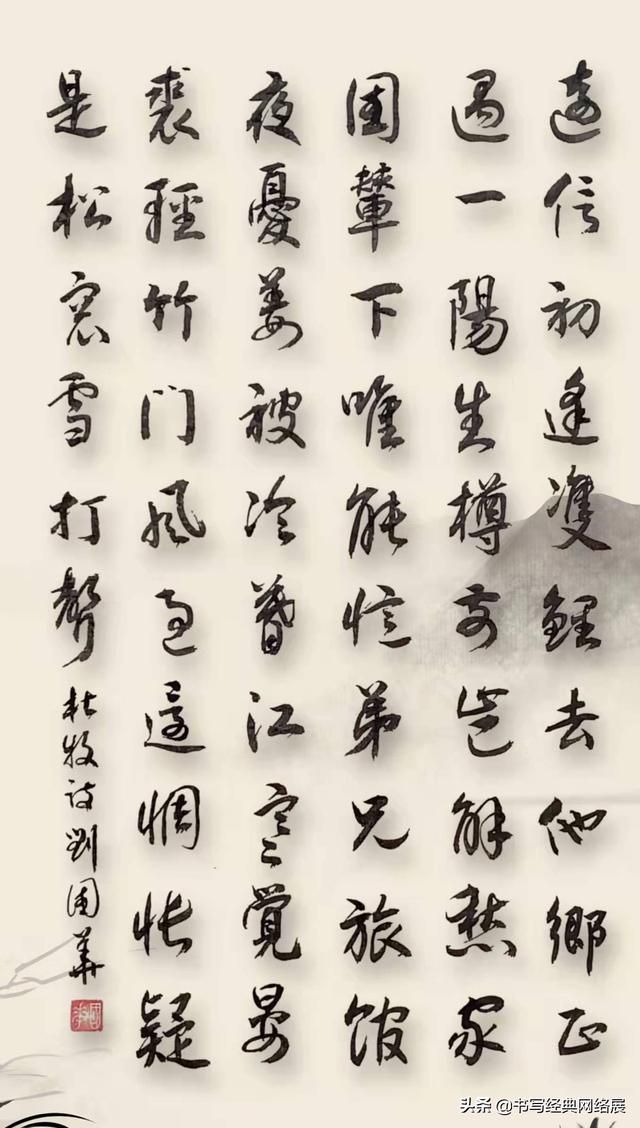 遠信初逢雙鯉去他鄉正
遇一陽生樽前豈解愁家
國輦下唯能憶弟兄旅館
夜憂姜被冷暮江寒覺晏
裘輕竹门風過還惆悵疑
是松窓雪打聲
杜牧诗劉國華
头条 @书写经典网络展